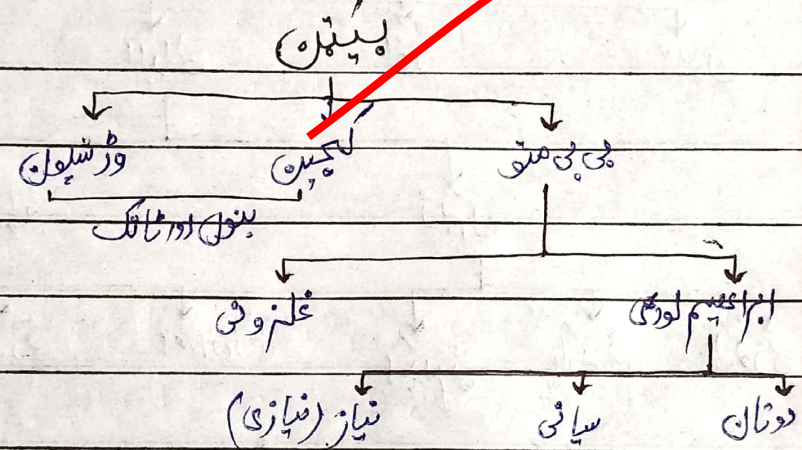 بیٹن
بی بی متو کجین وڑ شپون
بنوں اور ٹانک
ابراھیم لودھی غلزوئی
دوتان سیانی نیاز (نیازی)